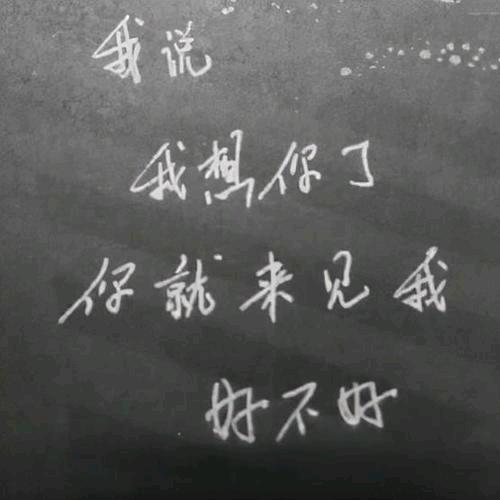 我说
我想你了
你就来见我
好不好